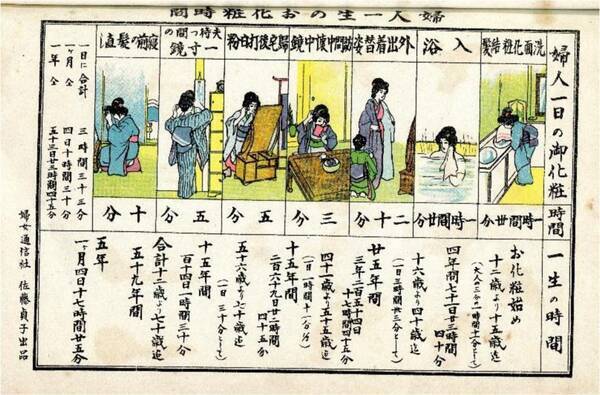 婦人一生のお化粧時間
婦人一日の御化粧時間
洗面化粧結髪
一時間廿分
入浴
一時間廿分
外出着替姿
二十分
訪問中懐中鏡
三分
帰宅後打日粉
五分
夫待つ間の一寸鏡
五分
寝前の髪直し
十分
一日に合計 三時間三十三分
一ヶ月仝 四日十時間三十分
一年仝 五十三日廿三時間四十五分
一生の時間
お化粧始め
十二歳より十五歳迄
四年間七十一日廿三時間
四十分
十六歳より四十歳迄
(一日三時間卅三分として)
廿五年間
三年二百五十四日
十七時間四十五分
四十一歳より五十五歳迄
(一日一時間十一分)
十五年間
二百六十九日廿二時間
四十五分
五十六歳より七十歳迄
(一日三十分として)
十五年間
百十四日一時間三十分
合計十二歳より七十歳迄
五十九年間
五年
一ヶ月四日十七時間廿五分
婦女通信社 佐藤貞子出品